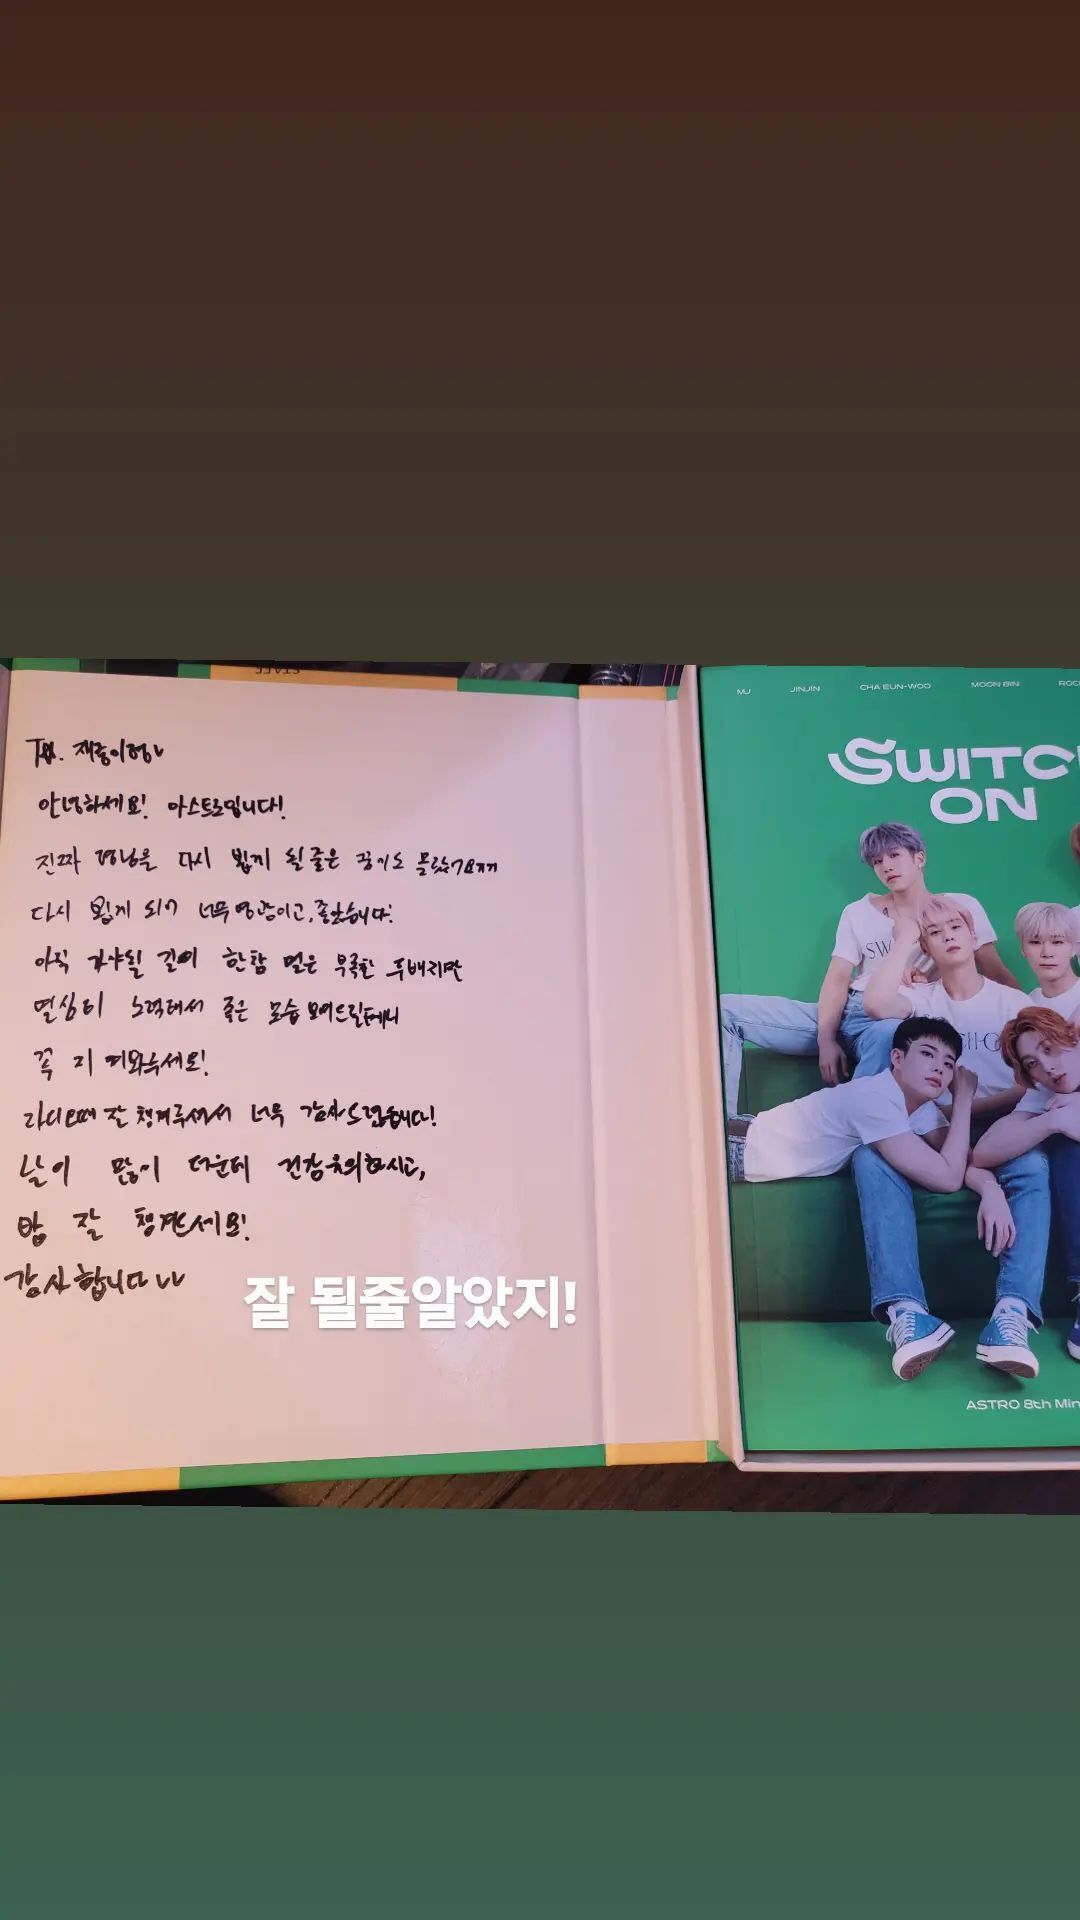 To. 재중이형~
안녕하세요! 아스트로입니다!
진짜 형님을 다시 뵙게 될 줄은 꿈에도 몰랐
다시 뵙게 되어 너무 영광이고, 좋았습니다!
아직 가야될 길이 한참 멀은 부족한 후배지만
열심히 노력해서 좋은 모습 보여드릴테니
꼭 지켜봐주세요!
라디오때 잘 챙겨주셔서 너무 감사드렸습니다!
날이 많이 더운데 건강유의하시고,
밥 잘 챙겨드세요!
감사합니다
잘 될줄알았지!
MJ JINJIN CHA EUN-WOO MOON BIN
SWITC
ON
ASTRO 8th Min